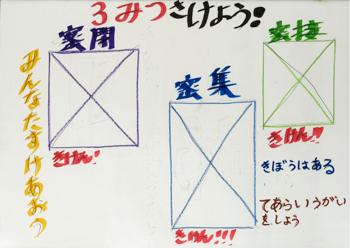 3みつさけよう!
密閉
きけん!
密集
きけん!!!
密接
きけん!!
みんなたすけあおう
きぼうはある
てあらいうがい
をしよう